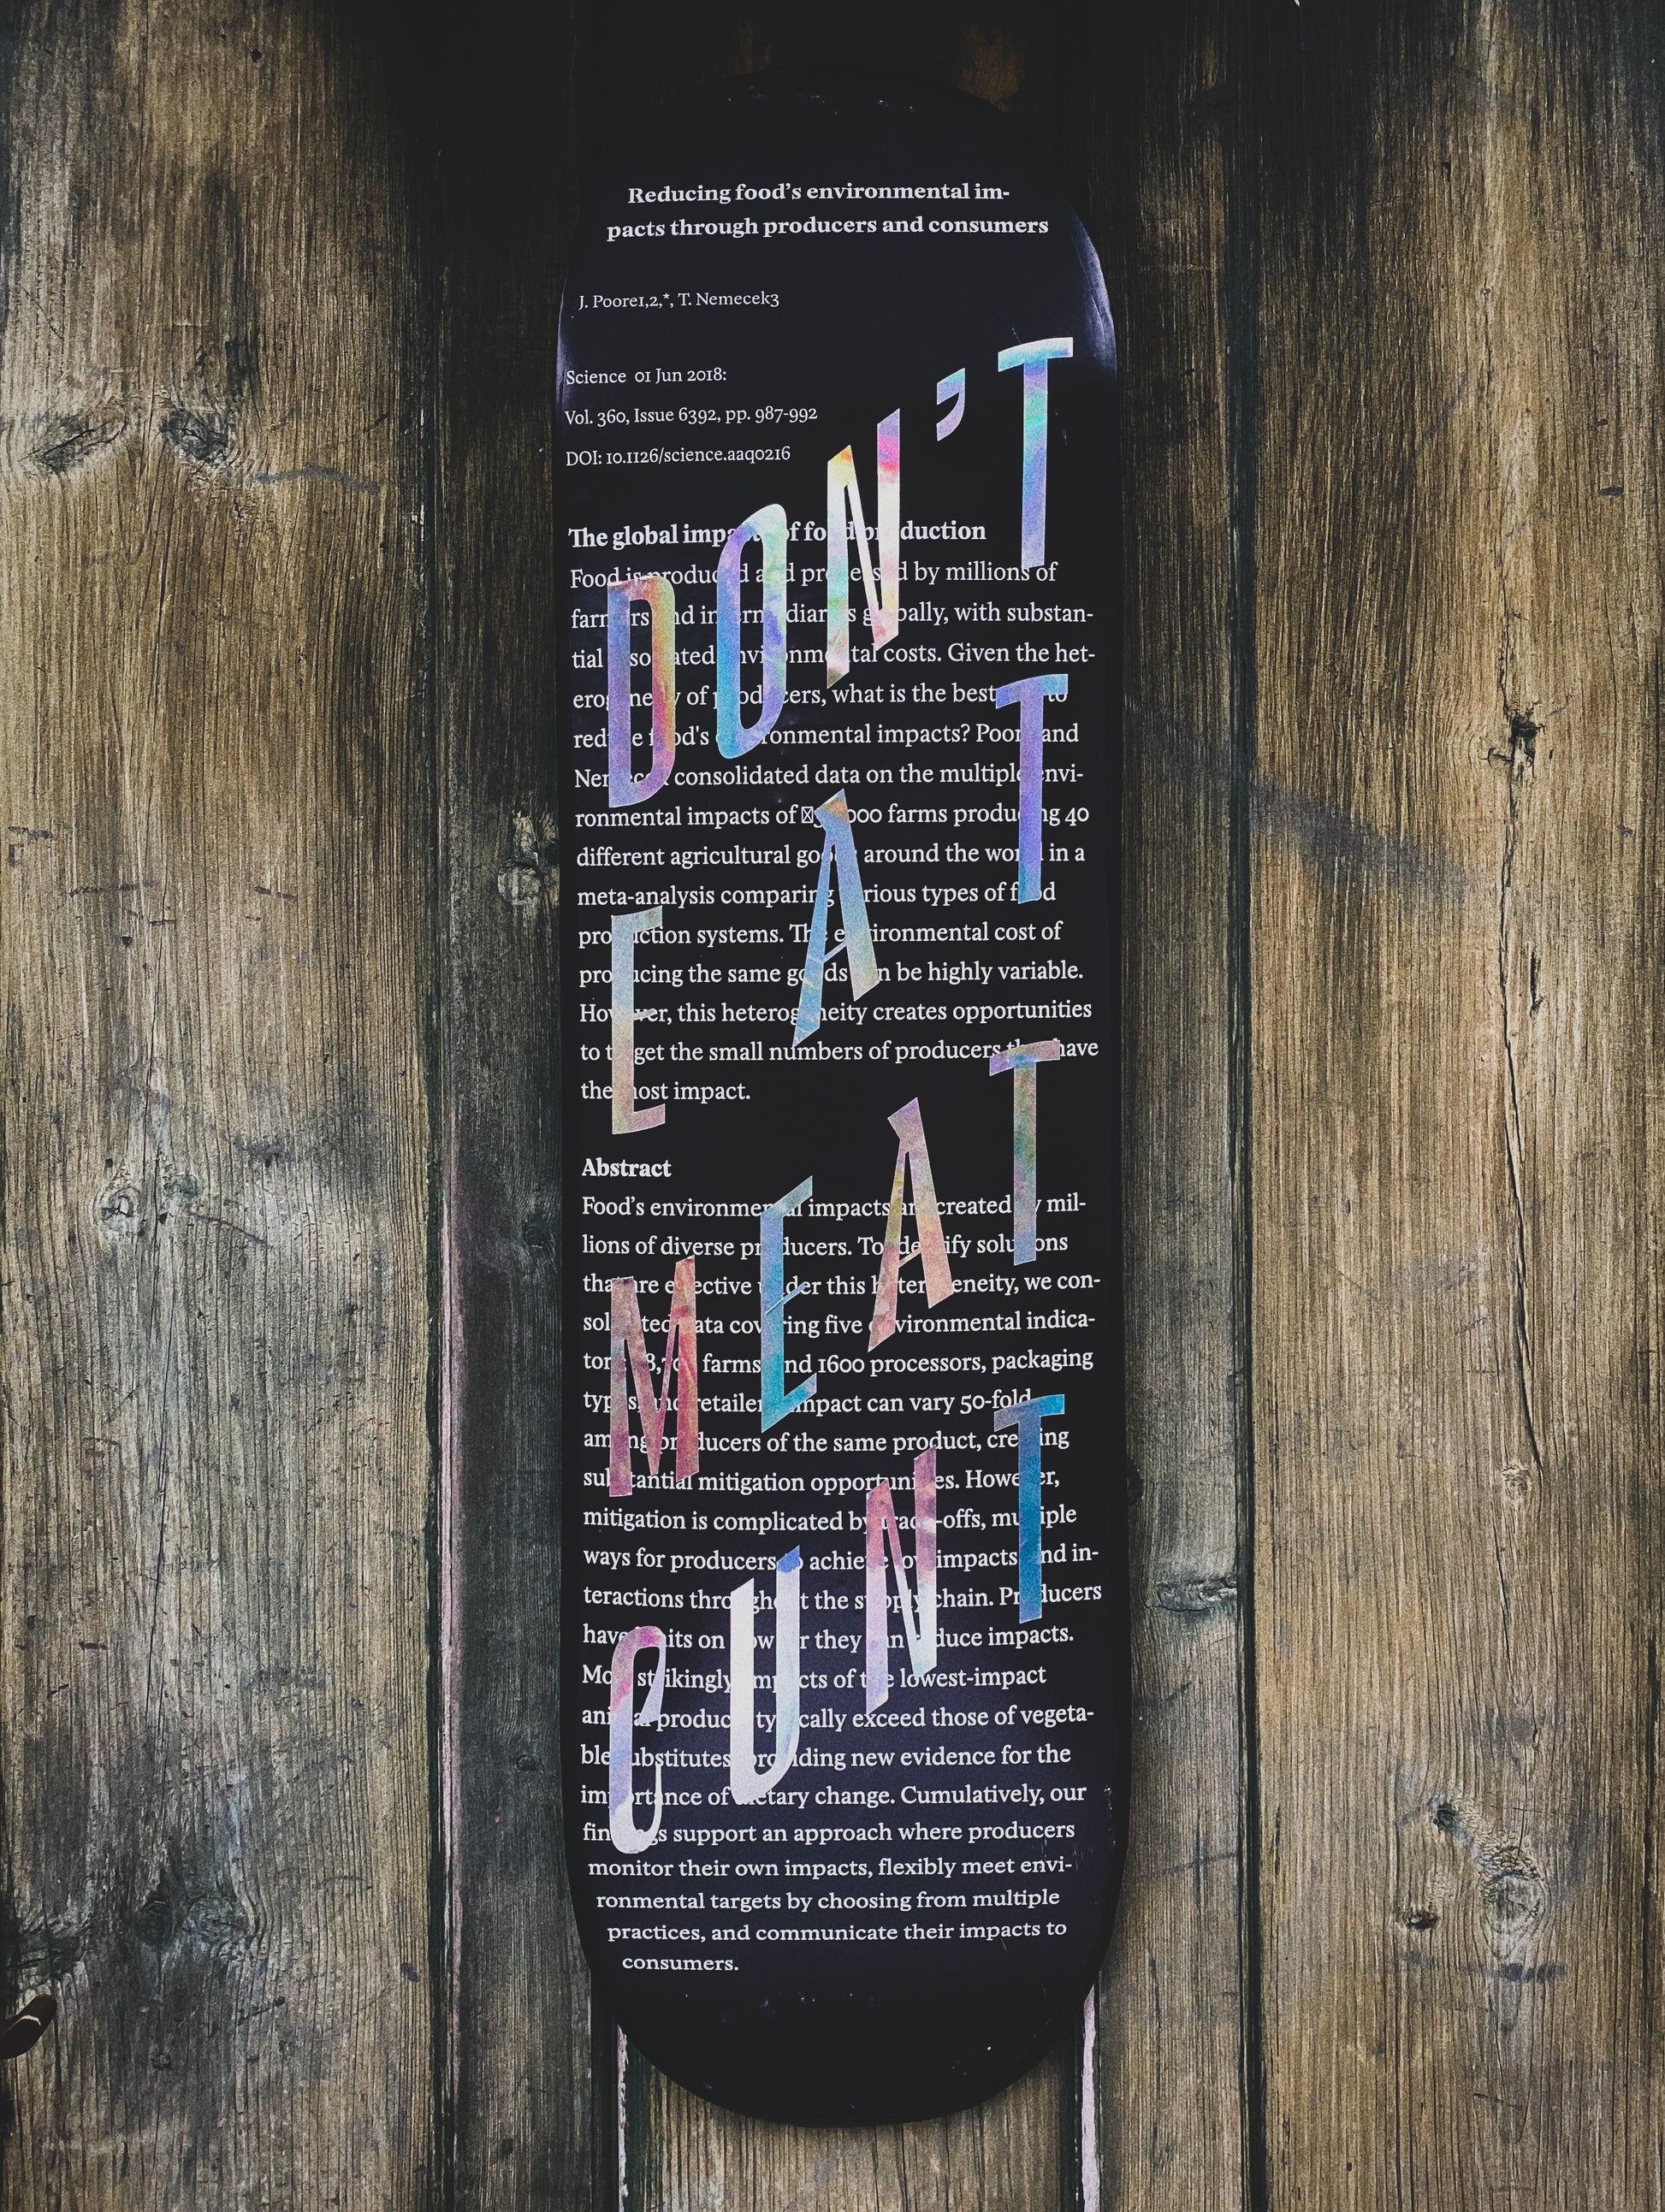 Reducing food's environmental im-
pacts through producers and consumers
J. Poore1,2,*, T. Nemecek3
Science 01 Jun 2018:
Vol. 360, Issue 6392, pp. 987-992
DOI: 10.1126/science.aaq0216
The global impacts of food production
Food is produced and processed by millions of
farmers and intermediaries globally, with substan-
tial associated environmental costs. Given the het-
erogeneity of producers, what is the best way to
reduce food's environmental impacts? Poore and
Nemecek consolidated data on the multiple envi-
ronmental impacts of farms producing 40
different agricultural goods around the world in a
meta-analysis comparing various types of food
production systems. The environmental cost of
producing the same goods can be highly variable.
However, this heterogeneity creates opportunities
to target the small numbers of producers that have
the most impact.
Abstract
Food's environmental impacts are created by mil-
lions of diverse producers. To identify solutions
that are effective under this heterogeneity, we con-
solidated data covering five environmental indica-
tors; 38,700 farms; and 1600 processors, packaging
types, and retailers. Impact can vary 50-fold
among producers of the same product, creating
substantial mitigation opportunities. However,
mitigation is complicated by trade-offs, multiple
ways for producers to achieve low impacts, and in-
teractions throughout the supply chain. Producers
have limits on how far they can reduce impacts.
Most strikingly, impacts of the lowest-impact
animal products typically exceed those of vegeta-
ble substitutes, providing new evidence for the
importance of dietary change. Cumulatively, our
findings support an approach where producers
monitor their own impacts, flexibly meet envi-
ronmental targets by choosing from multiple
practices, and communicate their impacts to
consumers.
DON'T
EAT
MEAT
CUNT